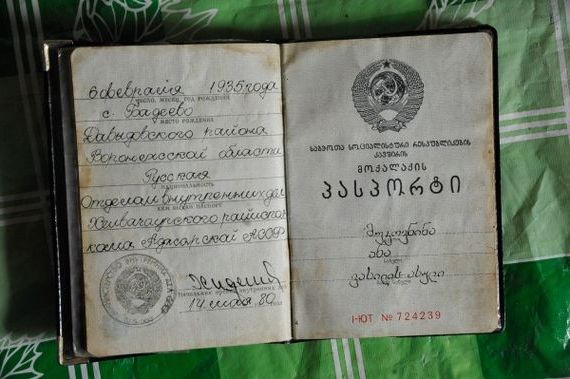 6 февраля 1935 года
число, месяц, год рождения
с. Бадеево
место рождения
Давыдовского района
Воронежской области
Русская
национальность
Отделом внутренних дел
кем выдан паспорт
Хелвачаурского райиспол
кома Аджарской АССР
14 мая 80 года
საბჭოთა სოციალისტური რესპუბლიკების
კავშირის
მოქალაქის
პასპორტი
ანა
სახელი
ვასილის ასული
I-ЮТ № 724239